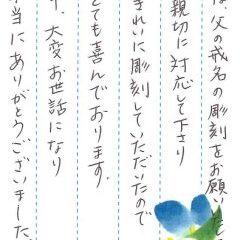 は、父の戒名の彫刻をお願いいたし
親切に対応して下さり
きれいに彫刻していただいたので
とても喜んでおります。
大変お世話になり
本当にありがとうございました